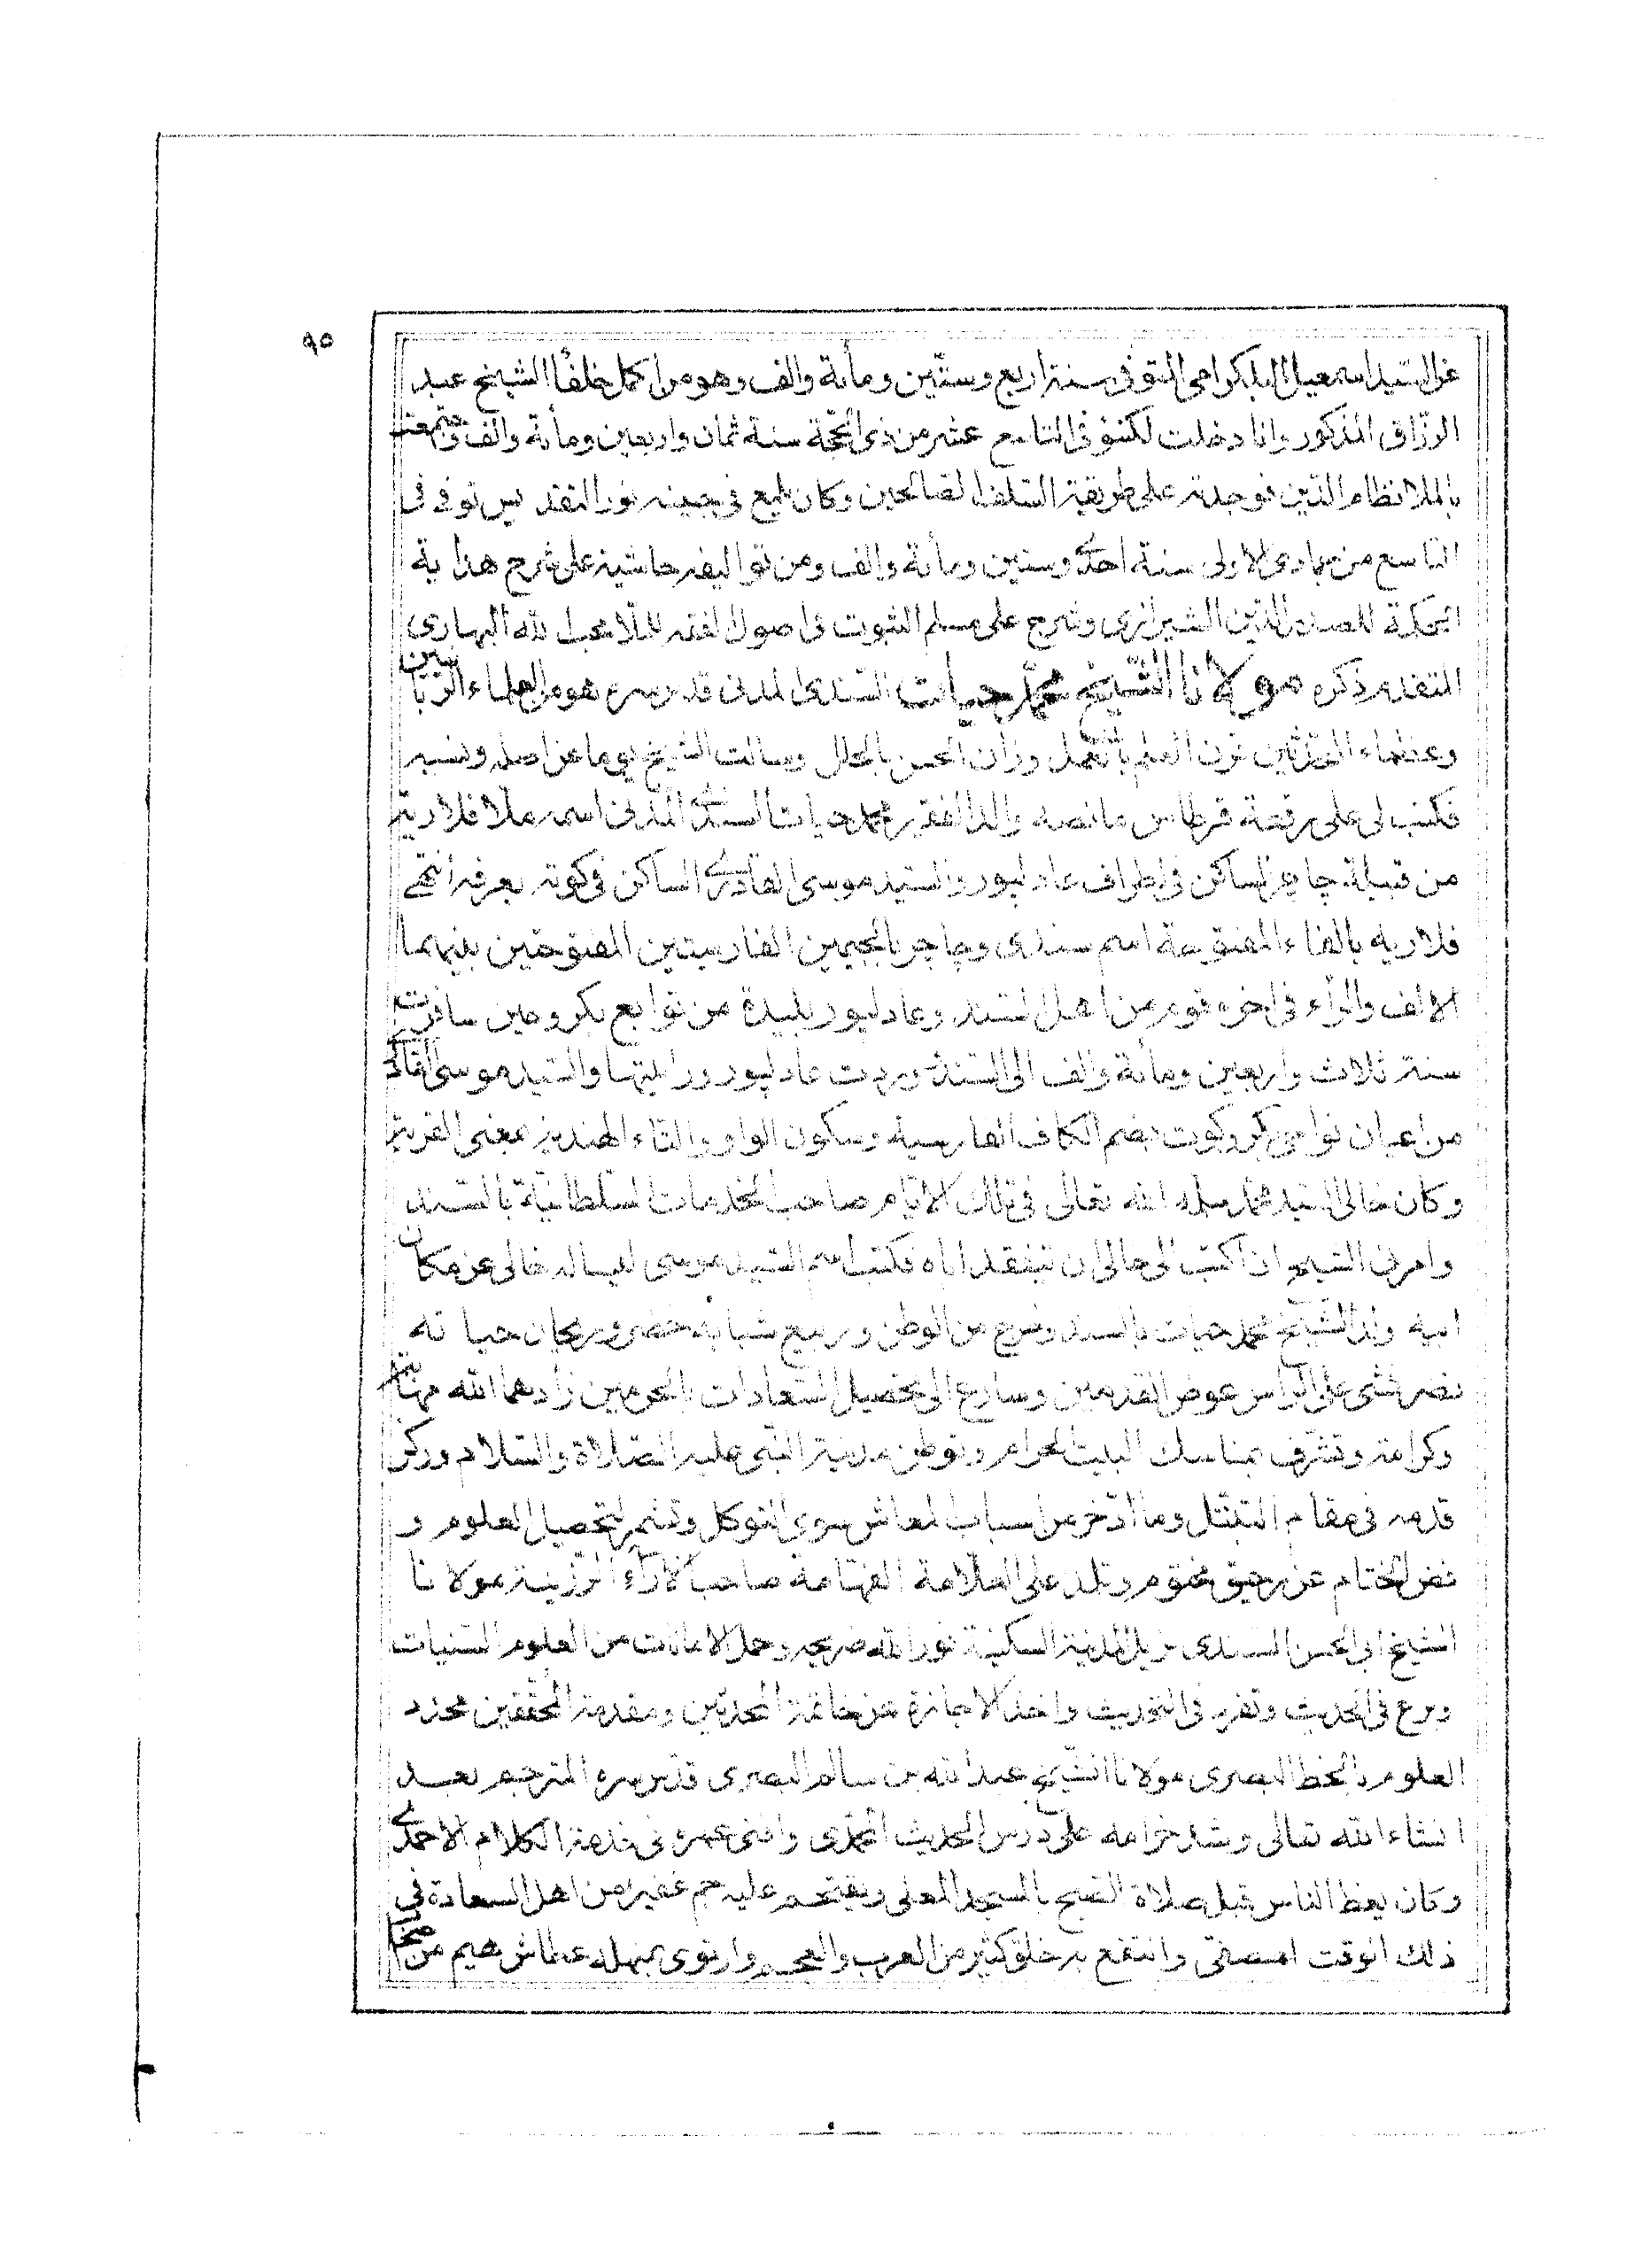 ٩٥
عن السيد اسمعيل البلكرامى المتوفى سنة اربع وستين ومأية والف وهو من اكمل خلفاء الشيخ عبد
الرزّاق المذكور وانا دخلت لكنؤ فى التاسع عشر من ذى الحجّة سنة ثمان واربعين ومأية والف واجتمعت
بالملا نظام الدّين فوجدته على طريقة السّلف الصّالحين وكان يلمع فى جبينه نور التقديس توفى فى
التاسع من جمادى الاولى سنة احدى وستين ومأية والف ومن تواليفه حاشية على شرح هداية
الحكمة للصدر الدّين الشيرازى وشرح على مسلم الثبوت فى اصول الفقه للملّا محب الله البهارى
المتقدم ذكره مولانا الشّيخ محمّد حيات السّندى المدنى قدس سره هو من العلماء الربّانيين
وعظماء المحدّثين قرن العلم بالعمل وزان الحسن بالحلل وسالت الشيخ يوما عن اصله ونسبه
فكتب لى على رقعة قرطاس ما نصه والد الفقير محمد حيات السندى المدنى اسمه ملّا فلاريه
من قبيلة چاچر الساكن فى اطراف عادلپور والسيد موسى القادرى الساكن فى كوته يعرفه انتهى
فلاريه بالفاء المفتوحة اسم سندى وچاچر بالجيمين الفارسيتين المفتوحتين بينهما
الالف والراء فى اخره قوم من اهل السند وعادلپور بليدة من توابع بكر وحين سافرت
سنة ثلاث واربعين ومأية والف الى السند وردت عادلپور ورايتها والسيد موسى القادرى
من اعيان نواحى بكر وكوت بضم الكاف الفارسية وسكون الواو والتاء الهندية بمعنى القرية
وكان خالى السيد محمد سلمه الله تعالى فى تلك الايّام صاحب الخدمات السّلطانيّة بالسند
وامرنى الشيخ ان اكتب الى خالى ان يتفقد اباه فكتب اسم السّيد موسى ليسأله خالى عن مكان
ابيه ولد الشّيخ محمد حيات بالسند وخرج من الوطن وربيع شبابه خضر وريحان حياته
نضر فمشى على الراس عوض القدمين وسارع الى تحصيل السّعادات بالحرمين زادهما الله مهابة
وكرامة وتشرّف بمناسك البيت الحرام وتوطن مدينة النّبى عليه الصّلاة والسّلام وركز
قدمه فى مقام التبتّل وما ادّخر من اسباب المعاش سوى التوكل وتشمر لتحصيل العلوم و
فض الختام عن رحيق مختوم وتلمذ على العلّامة الفهّامة صاحب الآراء الرّزينة مولانا
الشيخ ابى الحسن السندى نزيل المدينة السكينة نور الله ضريحه وحمل الامانات من العلوم السّنيات
وبرع فى الحديث وتفرد فى التوريث واخذ الاجازة عن خاتمة المحدّثين ومقدمة المحقّقين مجدد
العلوم بالخط البصرى مولانا الشّيخ عبد الله بن سالم البصرى قدّس سره المترجم بعد
انشاء الله تعالى وشد حزامه على درس الحديث المحمّدى وافنى عمره فى خدمة الكلام الاحمدى
وكان يعظ الناس قبل صلاة الصّبح بالمسجد المعلى ويقتحم عليه جم غفير من اهل السعادة فى
ذلك الوقت المصفى وانتفع به خلق كثير من العرب والعجم وارتوى بمنهله عطاش هيم من